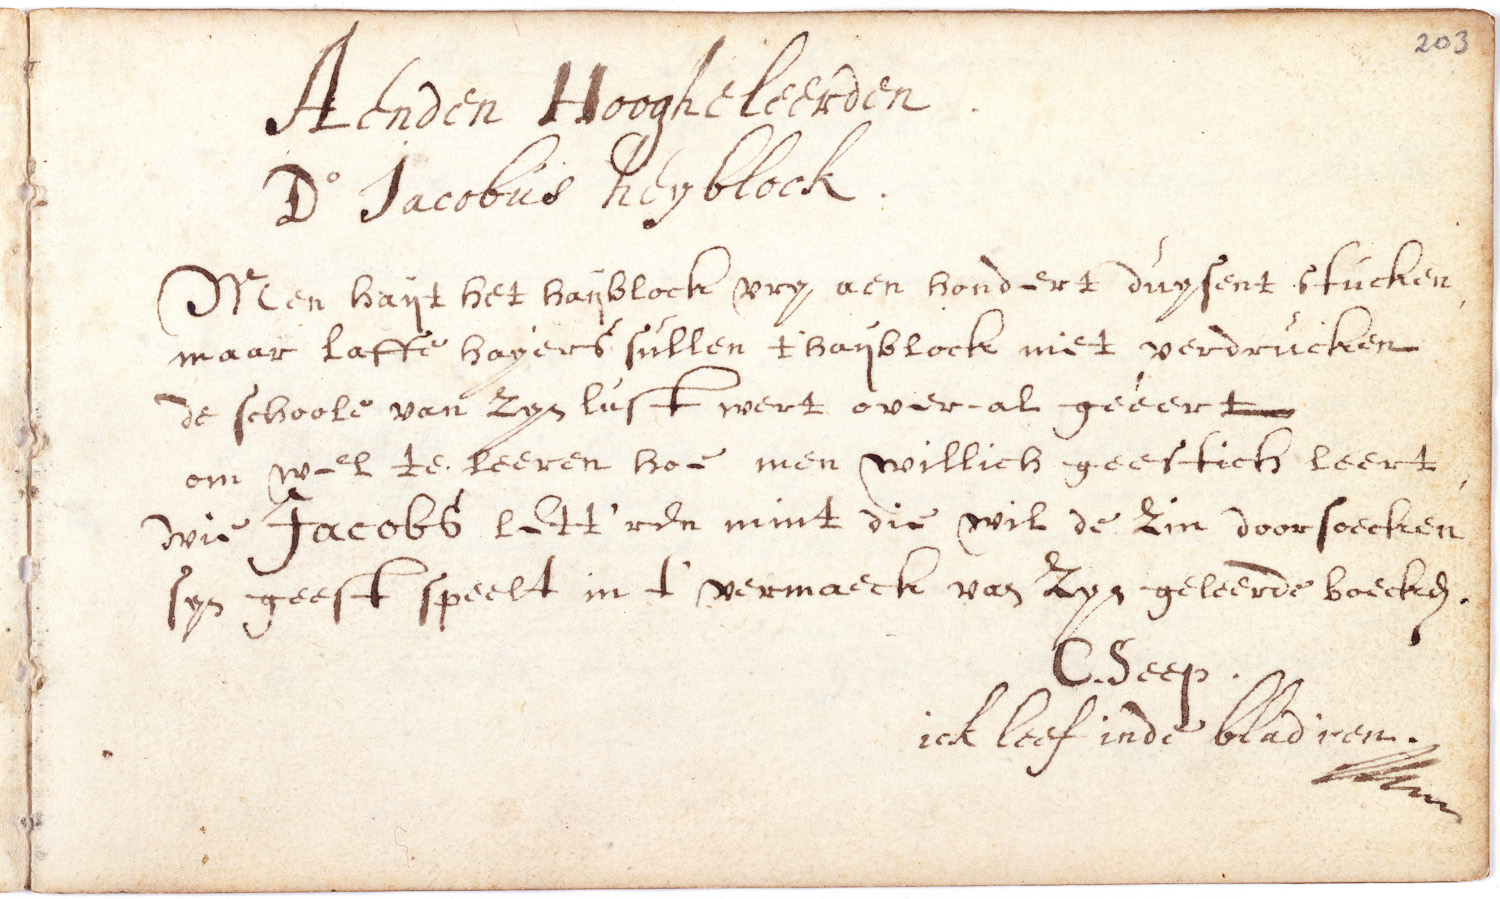 203
Aenden Hoogheleerden
D° Jacobus heyblock.
Men haijt het haijblock vry aen hondert duysent stucken,
maar laffe hayers sullen t'haijblock niet verdrucken
de schoole van Zyn lust wert over-al geëert
om wel te leeren hoe men willich geestich leert,
wie Jacobs lett'ren mint die wil de Zin doorsoecken
syn geest speelt in t' vermaeck van Zyn geleerde boecken.
C. Seep.
ick leef inde blad'ren.